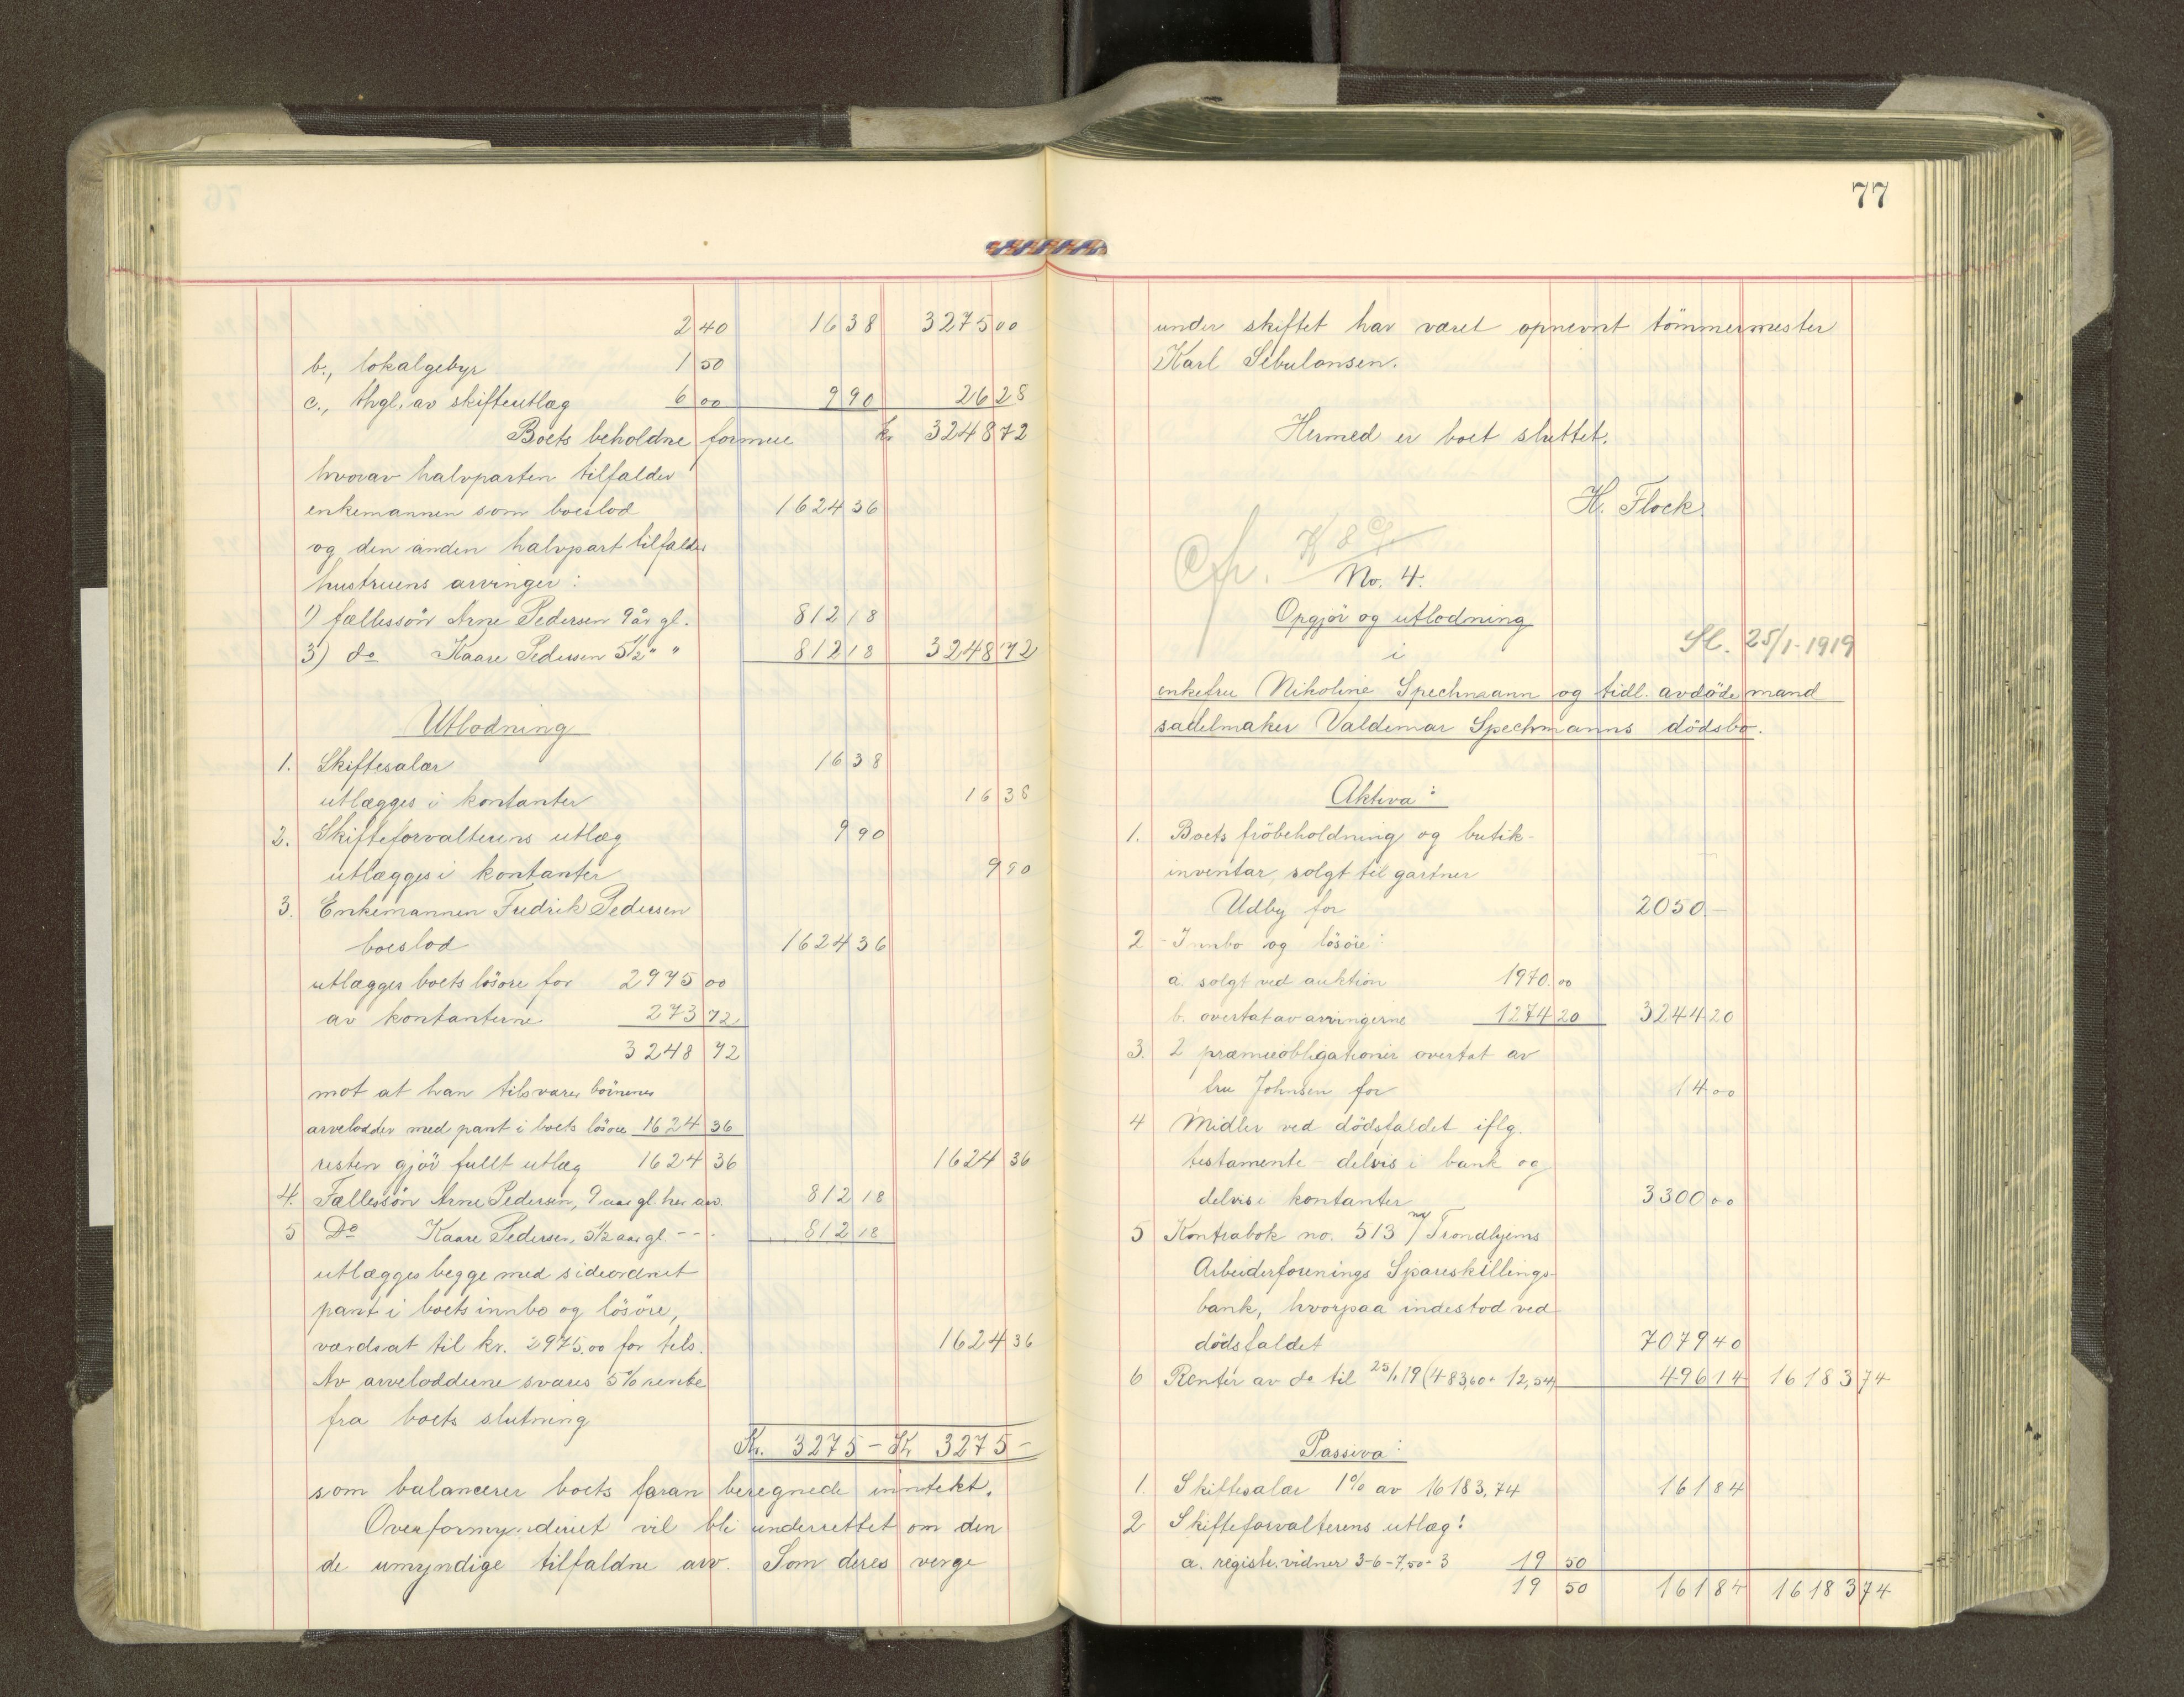 2 40 16 38 3275 00
b., lokalgebyr 1 50
c., thgl. av skifteutlæg 6 00 9 90 26 28
Boets beholdne formue kr 3248 72
hvorav halvparten tilfalder
enkemannen som boeslod 1624 36
og den anden halvpart tilfalder
hustruens arvinger:
1) fællessön Arne Pedersen 9 år gl. 812 18
3) do Kaare Pedersen 5½ " " 812 18 3248 72
Utlodning
1. Skiftesalær 16 38
utlægges i kontanter 16 38
2. Skifteforvalterens utlæg 9 90
utlægges i kontanter 9 90
3. Enkemannen Fredrik Pedersen
boeslod 1624 36
utlægges boets lösöre for 2975 00
av kontanterne 273 72
3248 72
mot at han tilsvarer börnenes
arvelodder med pant i boets lösöre 1624 36
resten gjör fullt utlæg 1624 36 1624 36
4. Fællessön Arne Pedersen, 9 aar gl. hes arv. 812 18
5 Do Kaare Pedersen, 5½ aar gl. - - . 812 18
utlægges begge med sideordnet
pant i boets innbo og lösöre,
værdsat til kr. 2975.00 for tils. 1624 36
Av arveloddene svares 5% rente
fra boets slutning
Kr. 3275 - Kr 3275 -
som balancerer boets foran beregnede inntekt.
Overformynderiet vil bli underrettet om den
de umyndige tilfaldne arv. Som deres verge
77
under skiftet har været opnevnt tömmermester
Karl Sebulonsen.
Hermed er boet sluttet.
H. Flock.
No. 4.
Opgjör og utlodning
Sl. 25/1-1919
i
enkefru Nikoline Spechmann og tidl. avdöde mand
sadelmaker Valdemar Spechmanns dödsbo.
Aktiva:
1. Boets fröbeholdning og butik-
inventar, solgt til gartner
Udby for 2050.-
2 - Innbo og lösöre:
a. solgt ved auktion 1970.00
b. overtat av arvingerne 1274 20 3244 20
3. 2 præmieobligationer overtat av
fru Johnsen for 14 00
4 Midler ved dödsfaldet iflg.
testamente - delvis i bank og
delvis i kontanter 3300 00
5 Kontrabok no. 513 m/ Trondhjems
Arbeiderforenings Spareskillings-
bank, hvorpaa indestod ved
dödsfaldet 7079 40
6 Renter av do til 25/1 19 (483,60 + 12,54) 496 14 16183 74
Passiva:
1. Skiftesalær 1% av 16183.74 161 84
2 Skifteforvalterens utlæg:
a. registr. vidner 3-6-7,50-3 19 50
19 50 161 84 16183 74